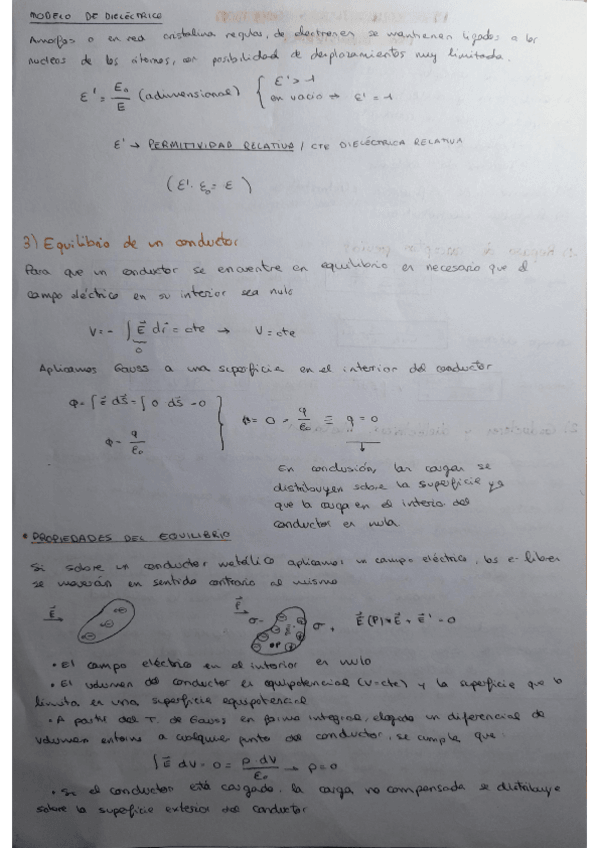 MODELO DE DIELÉCTRICO
Amorfos o en red cristalina regular, de electrones se mantienen ligados a los
nucleos de los átomos, con posibilidad de desplazamientos muy limitada.
ε' = E₀/E (adimensional) { ε' > 1
en vacío → ε' = 1
ε' → PERMITIVIDAD RELATIVA / CTE DIELÉCTRICA RELATIVA
(ε' · ε₀ = ε)
3) Equilibrio de un conductor
Para que un conductor se encuentre en equilibrio es necesario que el
campo eléctrico en su interior sea nulo
V = - ∫ E⃗ dr⃗ = cte → V = cte
0
Aplicamos Gauss a una superficie en el interior del conductor
Φ = ∫ E⃗ dS⃗ = ∫ 0 dS⃗ = 0
Φ = q/ε₀
} Φ = 0 = q/ε₀ ≡ q = 0
En conclusión, las cargas se
distribuyen sobre la superficie ya
que la carga en el interior del
conductor es nula.
• PROPIEDADES DEL EQUILIBRIO
Si sobre un conductor metálico aplicamos un campo eléctrico, los e- libres
se moverán en sentido contrario al mismo
E⃗ E⃗ σ- σ+ E⃗(P) = E⃗ + E⃗' = 0
• El campo eléctrico en el interior es nulo
• El volumen del conductor es equipotencial (V=cte) y la superficie que lo
limita es una superficie equipotencial
• A partir del T. de Gauss en forma integral, elegido un diferencial de
volumen entorno a cualquier punto del conductor, se cumple que:
∫ E⃗ dV = 0 = ρ · dV/ε₀ → ρ = 0
• Si el conductor está cargado, la carga no compensada se distribuye
sobre la superficie exterior del conductor